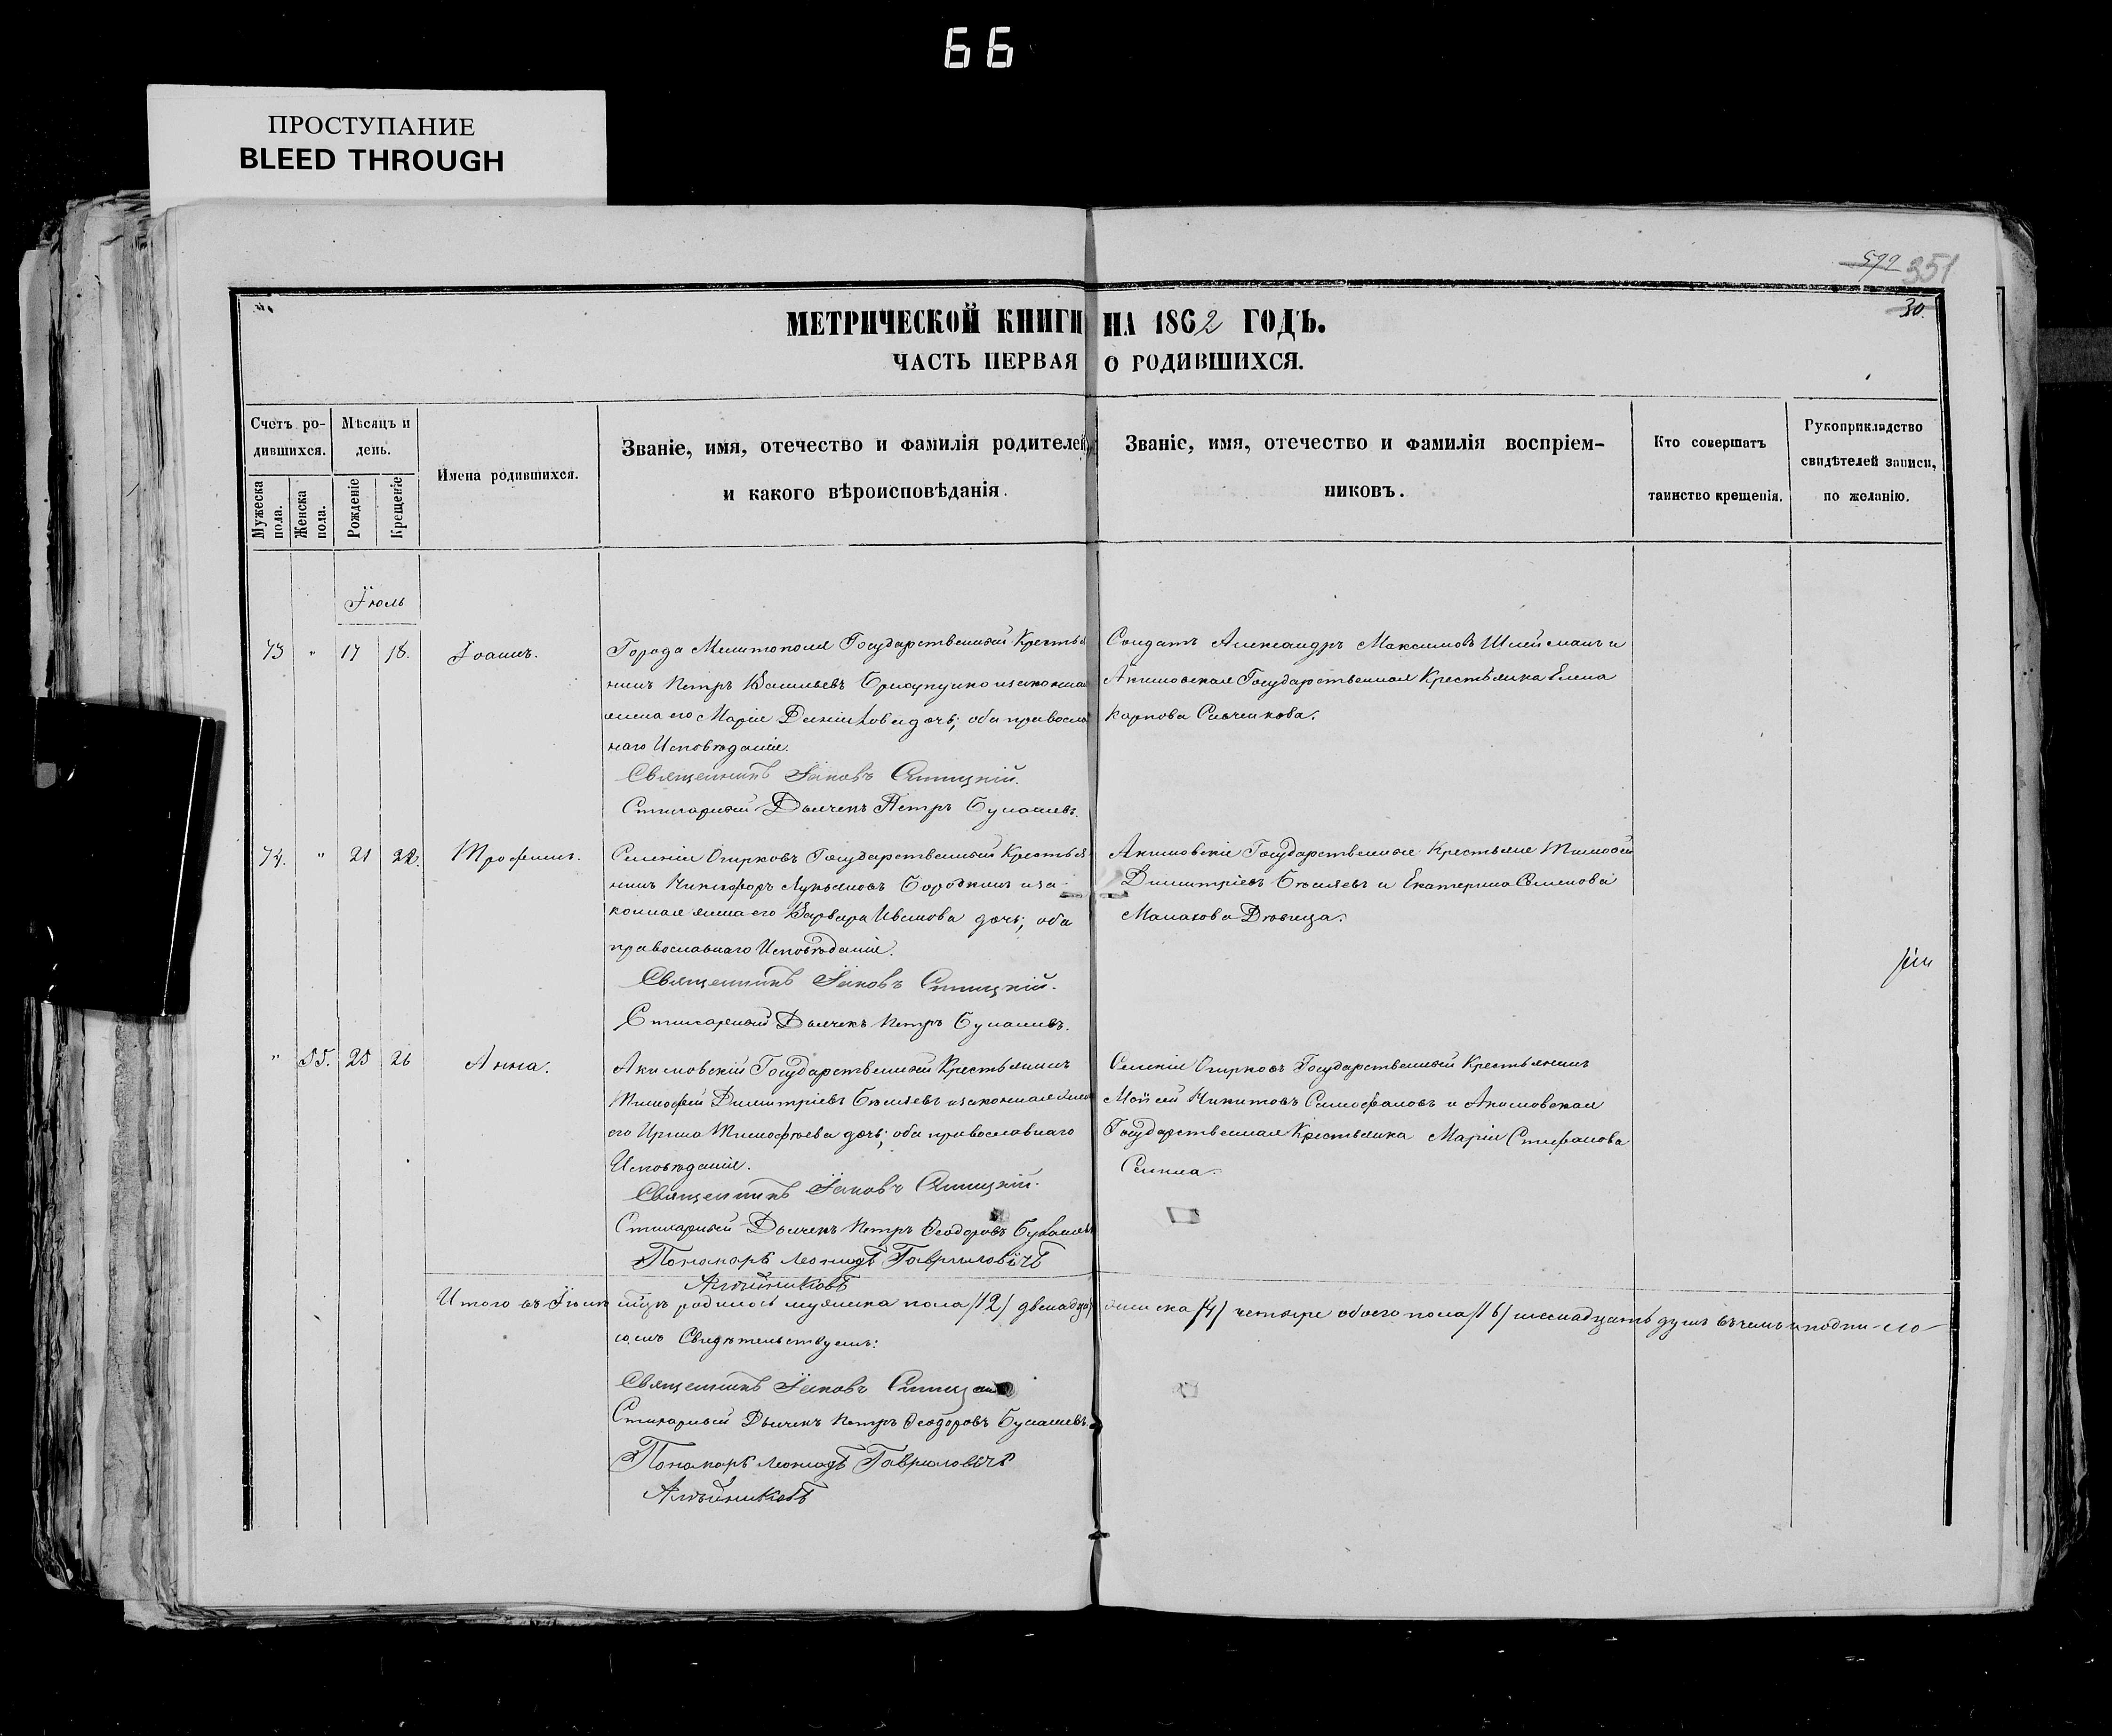 66
ПРОСТУПАНИЕ
BLEED THROUGH
599 351
30.
МЕТРИЧЕСКОЙ КНИГИ НА 1862 ГОДЪ.
ЧАСТЬ ПЕРВАЯ О РОДИВШИХСЯ.
Счетъ ро-
дившихся.
Мужеска пола.
Женска пола.
Мѣсяцъ и
день.
Рожденіе
Крещеніе
Имена родившихся.
Званіе, имя, отечество и фамилія родителей,
и какого вѣроисповѣданія.
Званіе, имя, отечество и фамилія воспріем-
никовъ.
Кто совершатъ
таинство крещенія.
Рукоприкладство
свидѣтелей записи,
по желанію.
Іюль
73 " 17 18. Іоаннъ.
Города Мелитополя Государственный Крестья
нинъ Петръ Васильевъ и законная
жена его Марія дочь; оба православ
наго Исповѣданія.
Священникъ Іаковъ
Стихарный Дьячекъ Петръ
Солдатъ Александръ Максимовъ и
Акимовская Государственная Крестьянка Елена
Карпова
74. " 21 22. Трофимъ.
Селенія Государственный Крестья
нинъ Никифоръ Лукьяновъ Бородкинъ и за
конная жена его Варвара Иванова дочь; оба
православнаго Исповѣданія.
Священникъ Іаковъ
Стихарный Дьячекъ Петръ
Акимовскіе Государственные Крестьяне Тимофей
Димитріевъ и Екатерина Семенова
Малахова Дѣвица.
" 55. 25 26 Анна.
Акимовскій Государственный Крестьянинъ
Тимофей Димитріевъ и законная жена
его Ирина Тимофѣева дочь; оба православнаго
Исповѣданія.
Священникъ Іаковъ
Стихарный Дьячекъ Петръ Ѳеодоровъ
Пономарь Леонидъ Гавриловичъ
Алейниковъ
Селенія Государственный Крестьянинъ
Моисей Никитовъ и Акимовская
Государственная Крестьянка Марія Стефанова
Итого въ Іюлѣ мѣцѣ родилось мужеска пола /12/ двенадца женска /4/ четыре обоего пола /16/ шеснадцать душъ въ чемъ и подпи-
сомъ Свидѣтельствуемъ:
Священникъ Іаковъ
Стихарный Дьячекъ Петръ Ѳеодоровъ
Пономарь Леонидъ Гавриловичъ
Алейниковъ